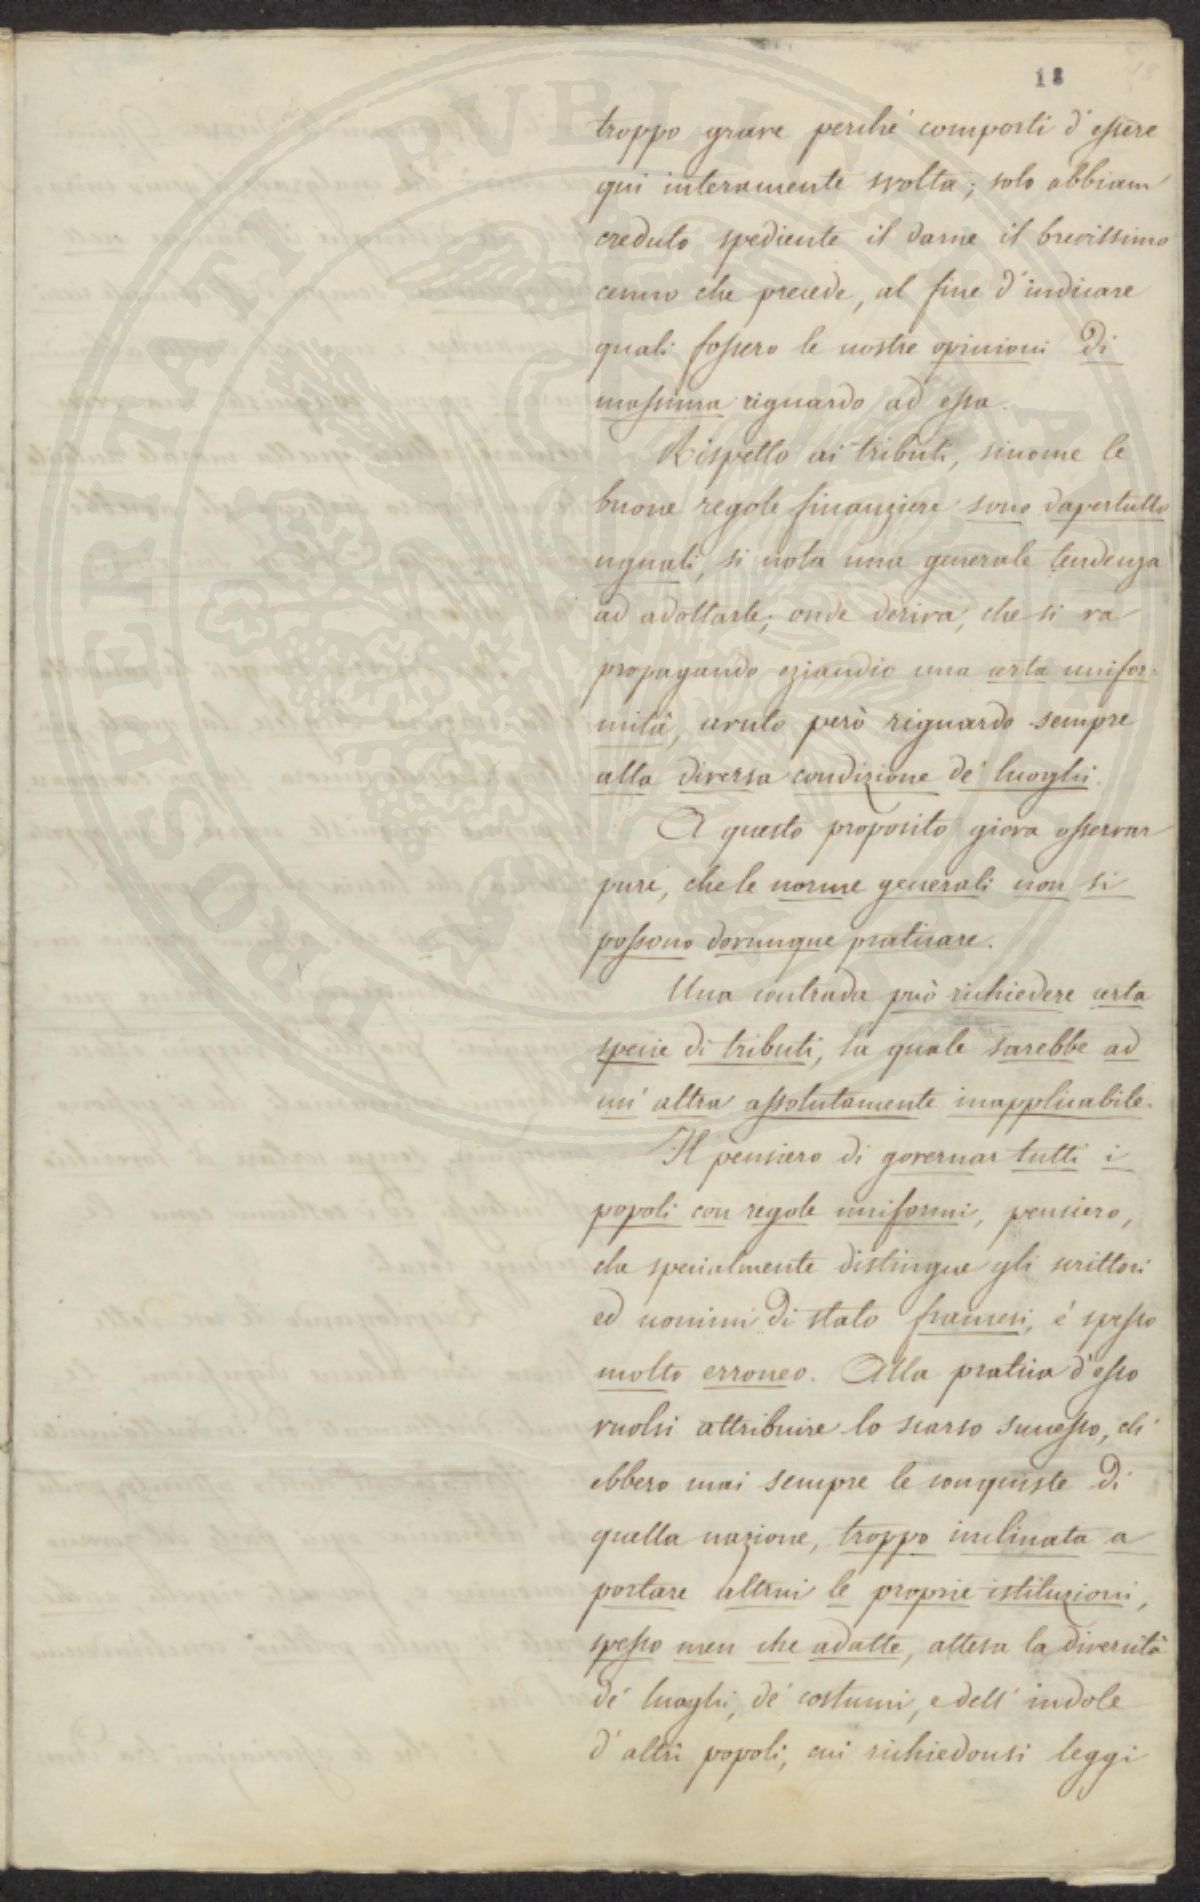 18
troppo grave perché comporti d'essere
qui interamente svolta; solo abbiam
creduto spediente il darne il brevissimo
cenno che precede, al fine d'indicare
quali fossero le nostre opinioni di
massima riguardo ad essa.
Rispetto ai tributi, siccome le
buone regole finanziere sono dapertutto
uguali, si nota una generale tendenza
ad adottarle; onde deriva, che si va
propagando eziandio una certa unifor-
mità, avuto però riguardo sempre
alla diversa condizione de' luoghi.
A questo proposito giova osservar
pure, che le norme generali non si
possono dovunque praticare.
Una contrada può richiedere certa
specie di tributi, la quale sarebbe ad
un' altra assolutamente inapplicabile.
Il pensiero di governar tutti i
popoli con regole uniformi, pensiero,
che specialmente distingue gli scrittori
ed uomini di stato francesi, é spesso
molto erroneo. Alla pratica d'esso
vuolsi attribuire lo scarso successo, ch'
ebbero mai sempre le conquiste di
quella nazione, troppo inclinata a
portare altrui le proprie istituzioni,
spesso men che adatte, attesa la diversità
de' luoghi, de' costumi, e dell' indole
d' altri popoli, cui richiedonsi leggi
PROSPERITATI PUBLICAE